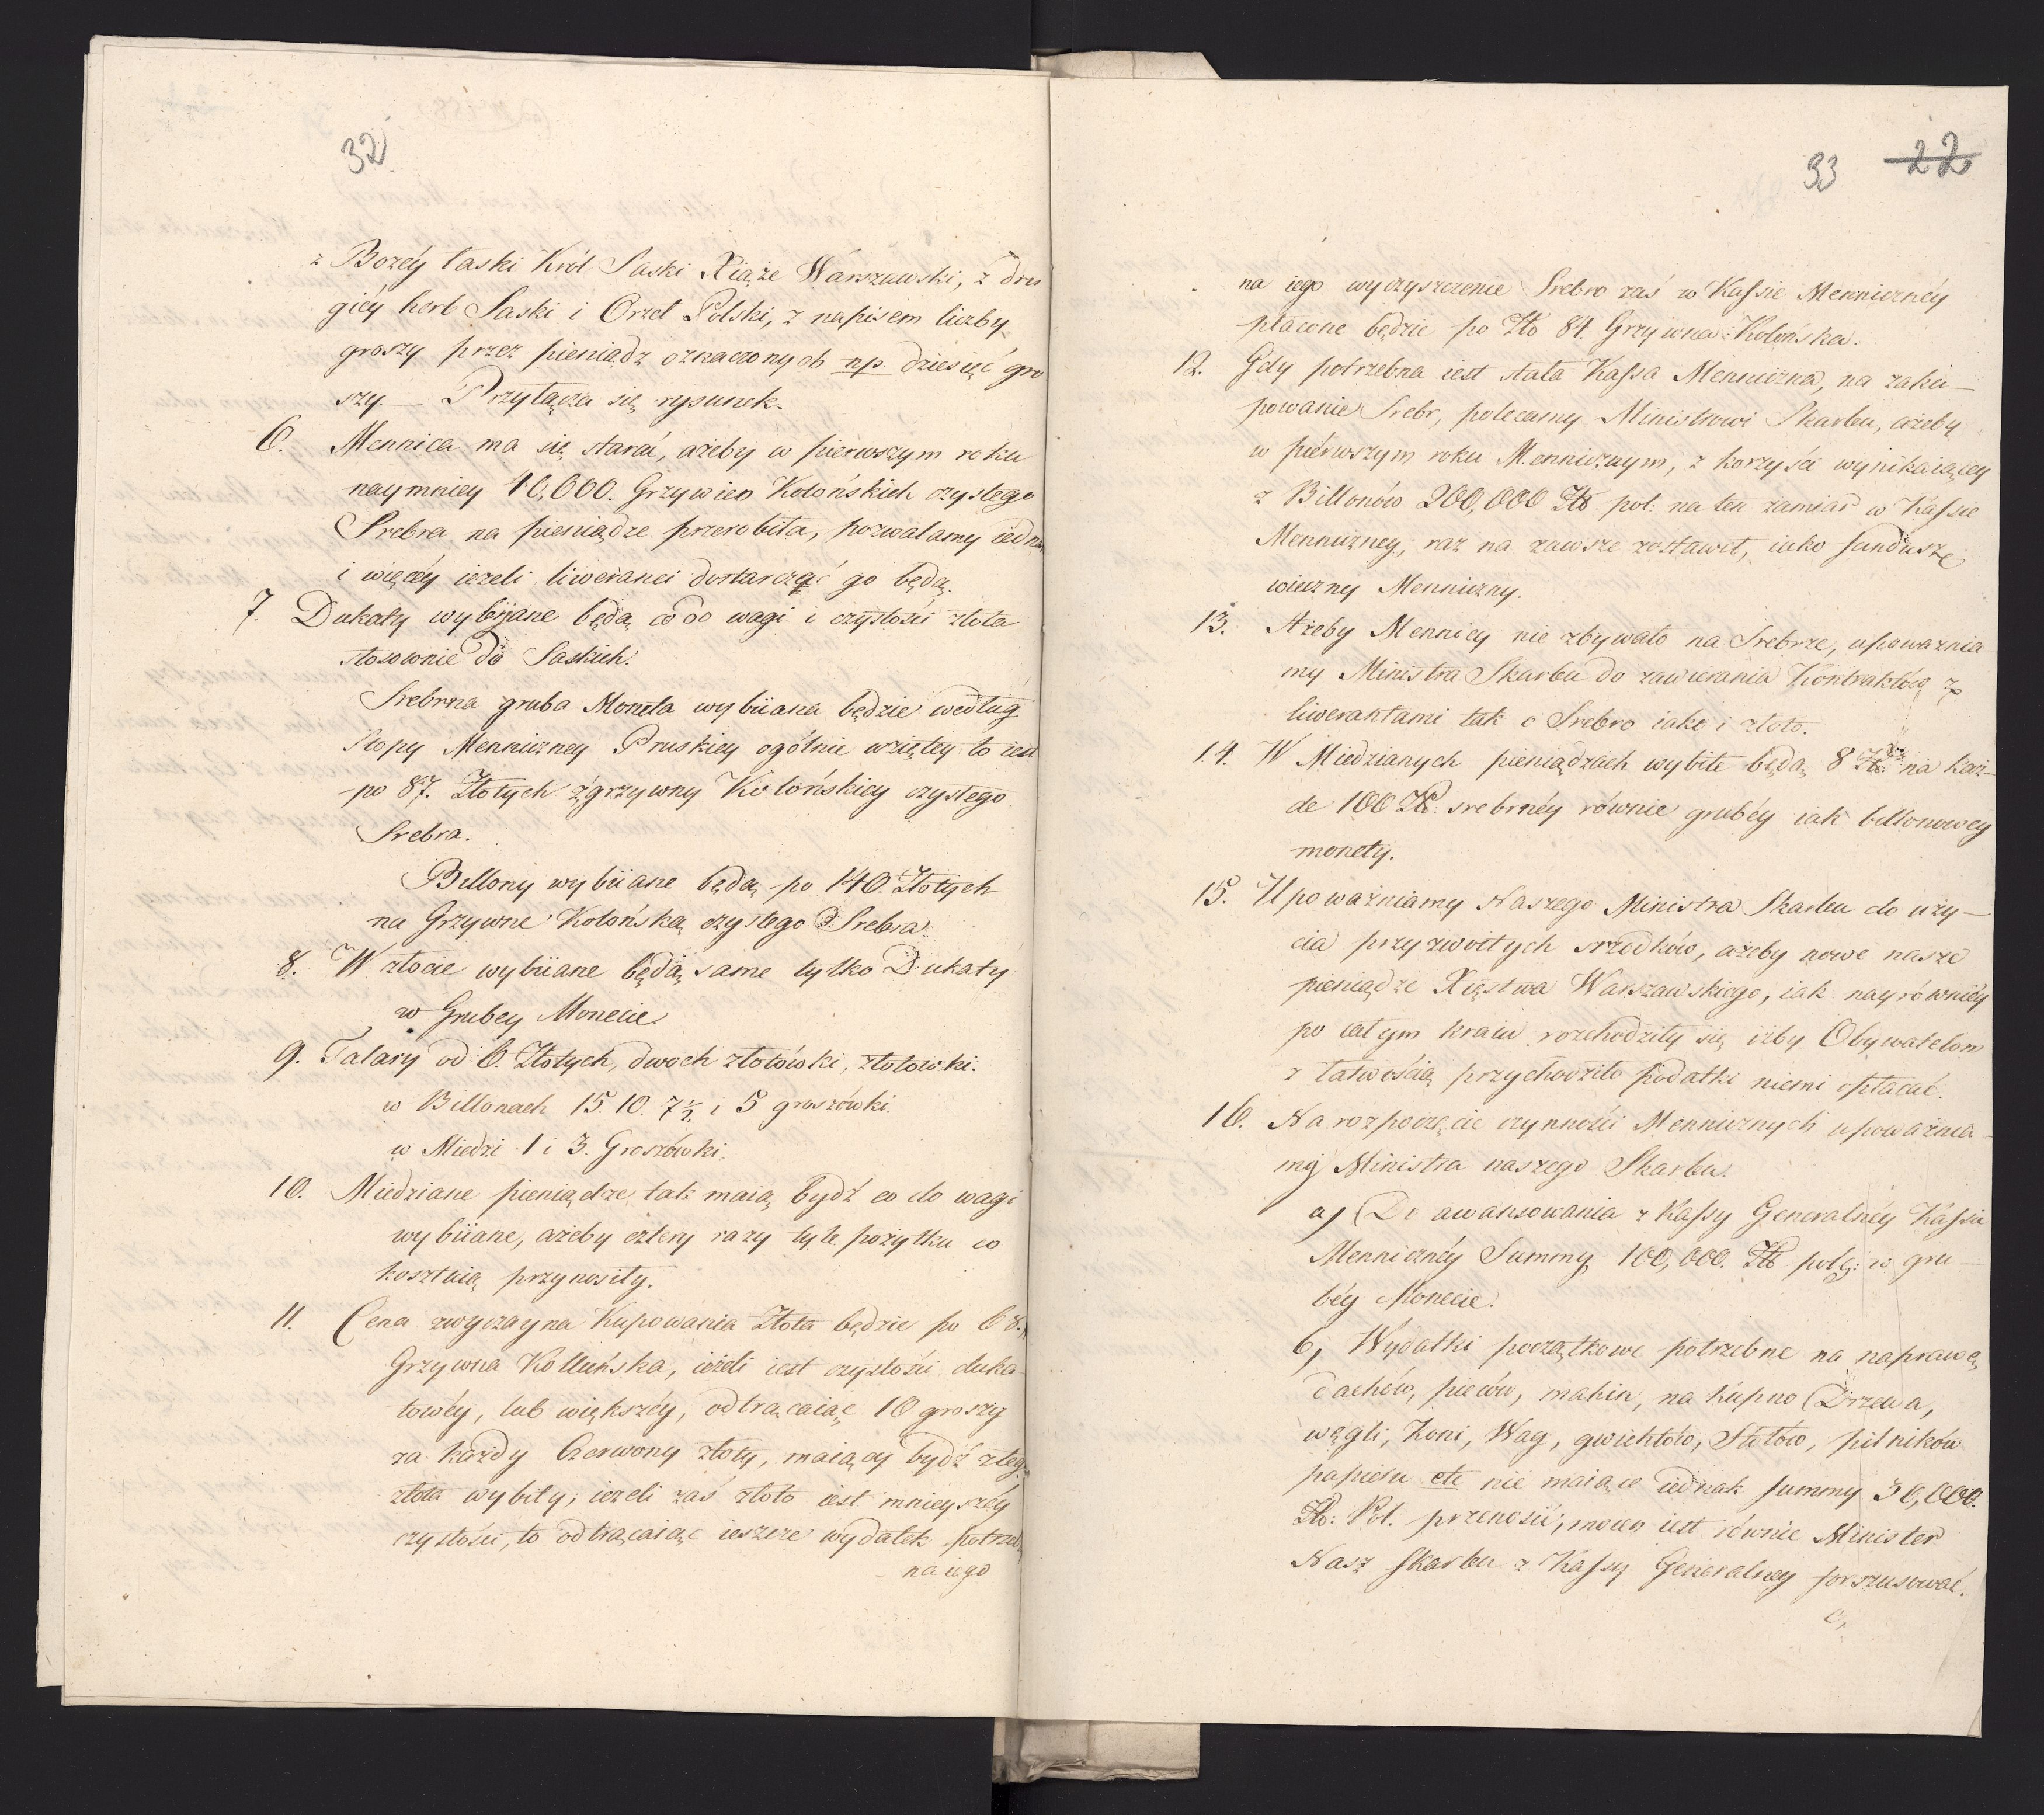 32
z Bozéy łaski Król Saski Xiąże Warszawski, z dru
giéy herb Saski i Orzeł Polski, z napisem liczby
groszy przez pieniądz oznaczonych np. dziesięć gro
szy — Przyłącza się rysunek.
6. Mennica ma się starać, ażeby w pierwszym roku
naymniey 10,000. Grzywien Kolońskich czystego
Srebra na pieniądze przerobiła, pozwalamy iedn
i więcéy ieżeli liweranci dostarczać go będą.
7. Dukaty wybijane będą co do wagi i czystości złota
stosownie do Saskich.
Srebrna gruba Moneta wybiiana będzie według
Stopy Menniczney Pruskiey ogólnie wziętey to iest
po 87. Złotych z grzywny Kolońskiey czystego
Srebra.
Billony wybiiane będą po 140. Złotych
na Grzywne Kolońską czystego Srebra.
8. W złocie wybiiane będą same tylko Dukaty
w Grubey Monecie.
9. Talary od 6. Złotych, dwoch złotówki, złotowki.
w Billonach 15. 10. 7½ i 5 groszówki.
w Miedzi 1 i 3. Groszówki.
10. Miedziane pieniądze, tak maią bydź co do wagi
wybiiane, ażeby cztery razy tyle pożytku co
kosztuią przynosiły.
11. Cena zwyczayna Kupowania Złota będzie po 68.
Grzywna Kolluńska, iéżeli iest czystości duka
towéy, lub większéy, odtrącaiąc 10 groszy
za każdy Czerwony złoty, maiący bydź z teg
złota wybity; ieżeli zaś złoto iest mnieyszéy
czystości, to odtrącaiąc ieszcze wydatek potrzeb
na iego
33 22
na iego wyczyszczenie Srebro zaś w Kassie Mennicznéy
płacone będzie po Zło 84. Grzywna Kolońska.
12. Gdy potrzebna iest stała Kassa Menniczna, na zaku—
powanie Srebr, polecamy Ministrowi Skarbu, ażeby
w piérwszym roku Mennicznym, z korzyści wynikaiącéy
z Billonów 200,000 Zło. pol: na ten zamiar w Kassie
Menniczney, raz na zawsze zostawił, iako fundusz
wieczny Menniczny.
13. Ażeby Mennicy nie zbywało na Srebrze, upoważnia
my Ministra Skarbu do zawierania Kontraktów z
liwerantami tak o Srebro iako i złoto.
14. W Miedzianych pieniądzach wybite będą 8 Zło: na każ—
de 100 Zło: srebrnéy równie grubéy iak billonowey
monety.
15. Upoważniamy Naszego Ministra Skarbu do uży—
cia przyzwoitych srzodków, ażeby nowe nasze
pieniądze Xięstwa Warszawskiego, iak nayrówniéy
po całym kraiu rozchodziły się iżby Obywatelom
z łatwością przychodziło podatki niemi opłacać.
16. Na rozpoczęcie czynności Mennicznych upoważnia—
my Ministra naszego Skarbu.
a) Do awansowania z Kassy Generalnéy Kassie
Mennicznéy Summy 100,000. Zło pols: w gru—
béy Monecie.
b, Wydatki początkowe potrzebne na naprawę
dachów, pieców, mahin, na kupno Drzewa,
węgli, Koni, Wag, gwichtów, Stołów, pilników
papieru etc nie maiące iednak summy 30,000.
Zło: Pol. przenosić, mocen iest równie Minister
Nasz Skarbu z Kassy Generalney forszusować.
c,